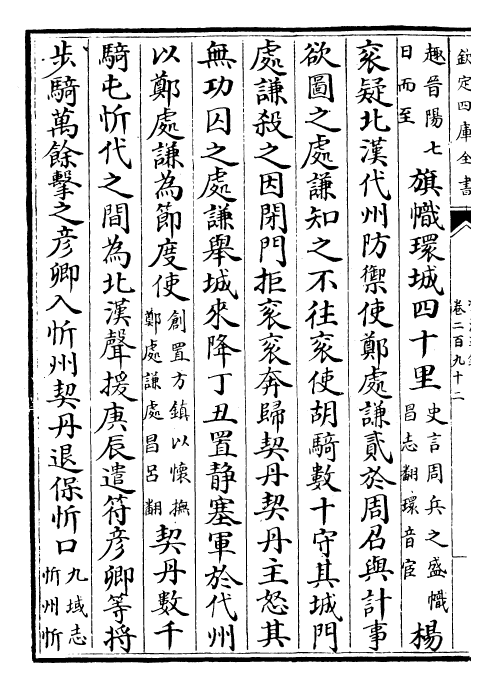 欽定四庫全書
卷二百九十二
趣晉陽七
日而至
旗幟環城四十里
史言周兵之盛幟
昌志翻環音宦
楊
衮疑北漢代州防禦使鄭處謙貳於周召與計事
欲圖之處謙知之不往衮使胡騎數十守其城門
處謙殺之因閉門拒衮衮奔歸契丹契丹主怒其
無功囚之處謙舉城來降丁丑置静塞軍於代州
以鄭處謙為節度使
創置方鎮以懷撫
鄭處謙處昌呂翻
契丹數千
騎屯忻代之間為北漢聲援庚辰遣符彦卿等將
步騎萬餘擊之彦卿入忻州契丹退保忻口
九域志
忻州忻